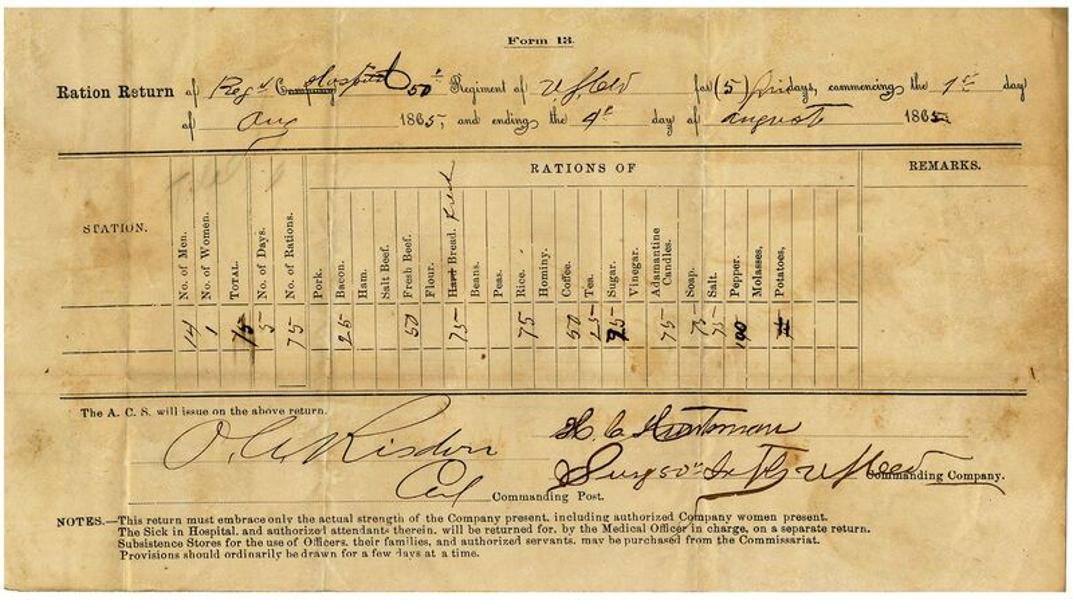 Form 13.
Ration Return of Reg'l Company Hospital 50th Regiment of for (5) days, commencing the 1st day
of Aug 1865, and ending the 4th day of august 1865.
RATIONS OF
REMARKS.
STATION.
No. of Men.
No. of Women.
TOTAL.
No. of Days.
No. of Rations.
Pork.
Bacon.
Ham.
Salt Beef.
Fresh Beef.
Flour.
Hard Bread. Fresh
Beans.
Peas.
Rice.
Hominy.
Coffee.
Tea.
Sugar.
Vinegar.
Adamantine Candles.
Soap.
Salt.
Pepper.
Molasses,
Potatoes,
14 1 15 5 75 25 50 75 75 50 25 75 75 75 100
The A. C. S. will issue on the above return.
O. A. Risdon
Col Commanding Post.
H. C. Huntsman
Surg 50th Commanding Company.
NOTES.—This return must embrace only the actual strength of the Company present, including authorized Company women present.
The Sick in Hospital, and authorized attendants therein, will be returned for, by the Medical Officer in charge, on a separate return.
Subsistence Stores for the use of Officers, their families, and authorized servants, may be purchased from the Commissariat.
Provisions should ordinarily be drawn for a few days at a time.